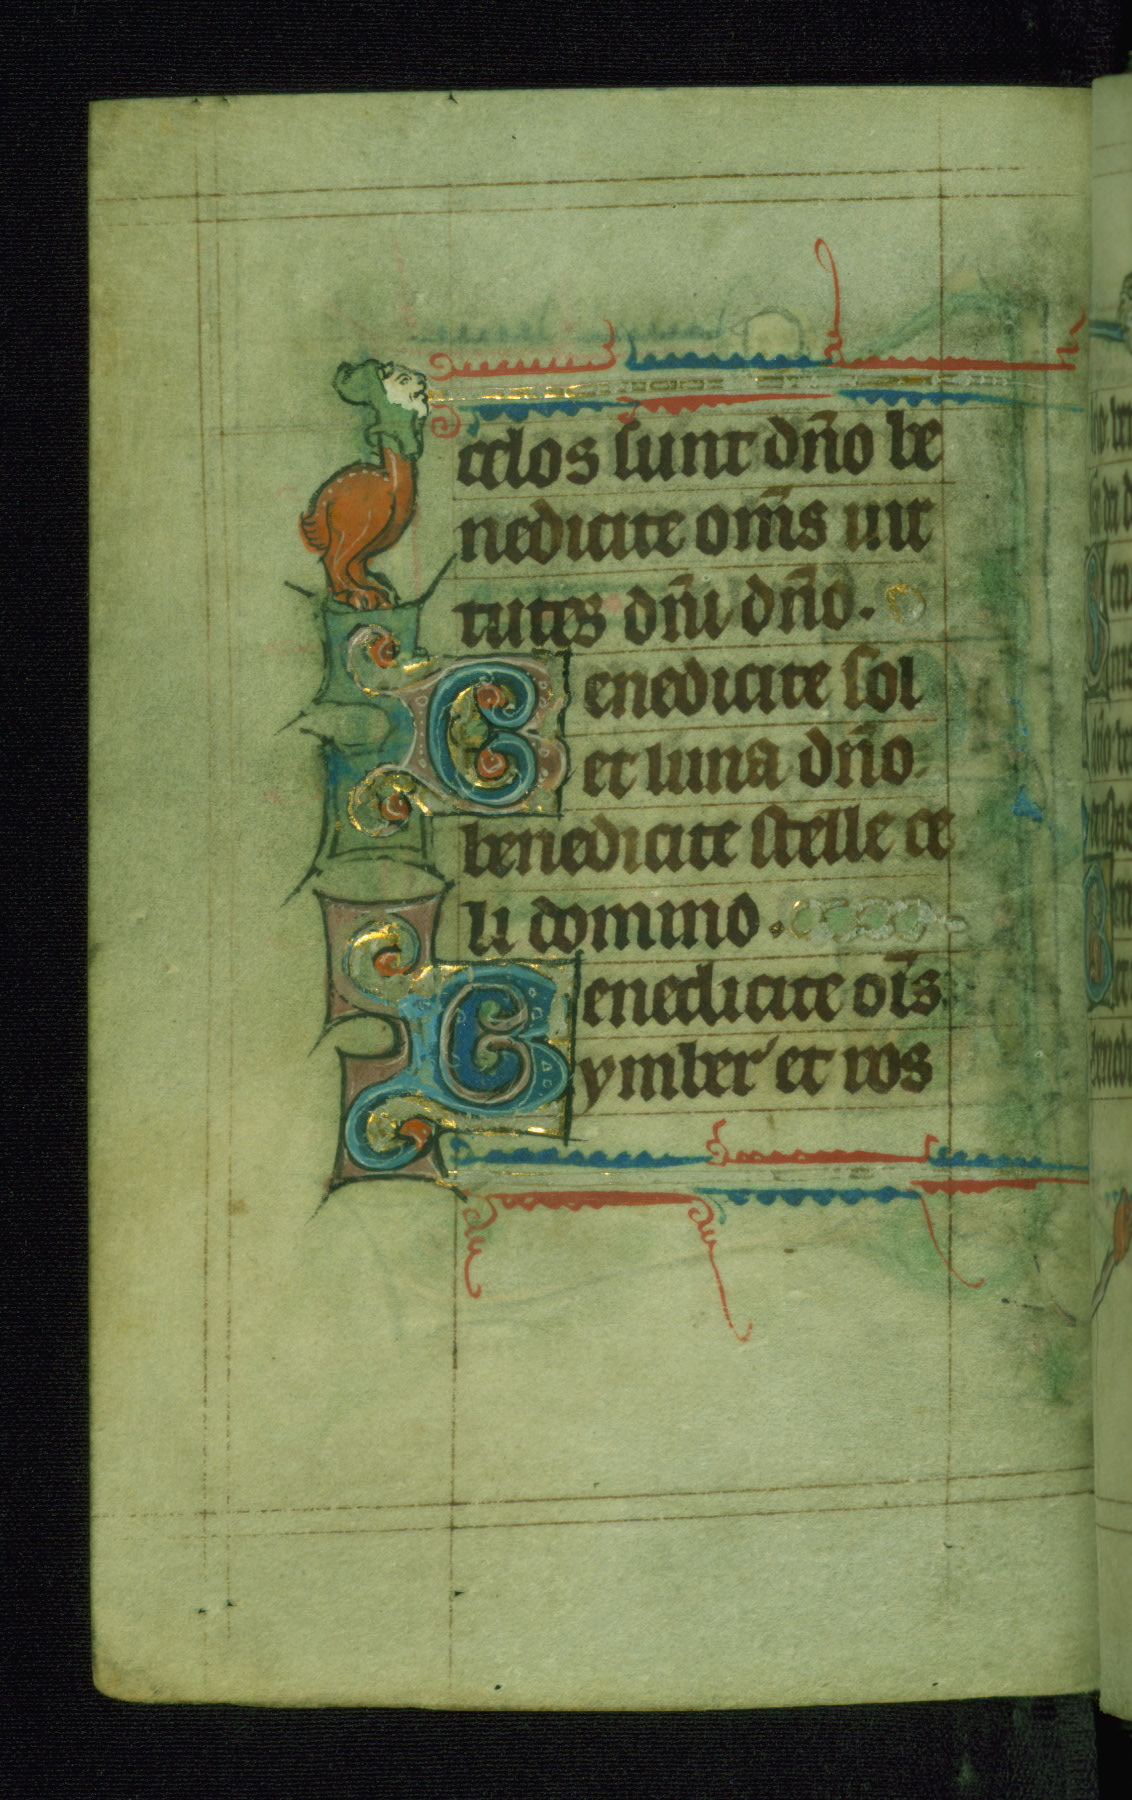 celos sunt dn̄o be
nedicite om̄s uir
tutes dn̄i dn̄o.
Benedicite sol
et luna dn̄o.
benedicite stelle ce
li domino.
Benedicite oīs
ymber et ros